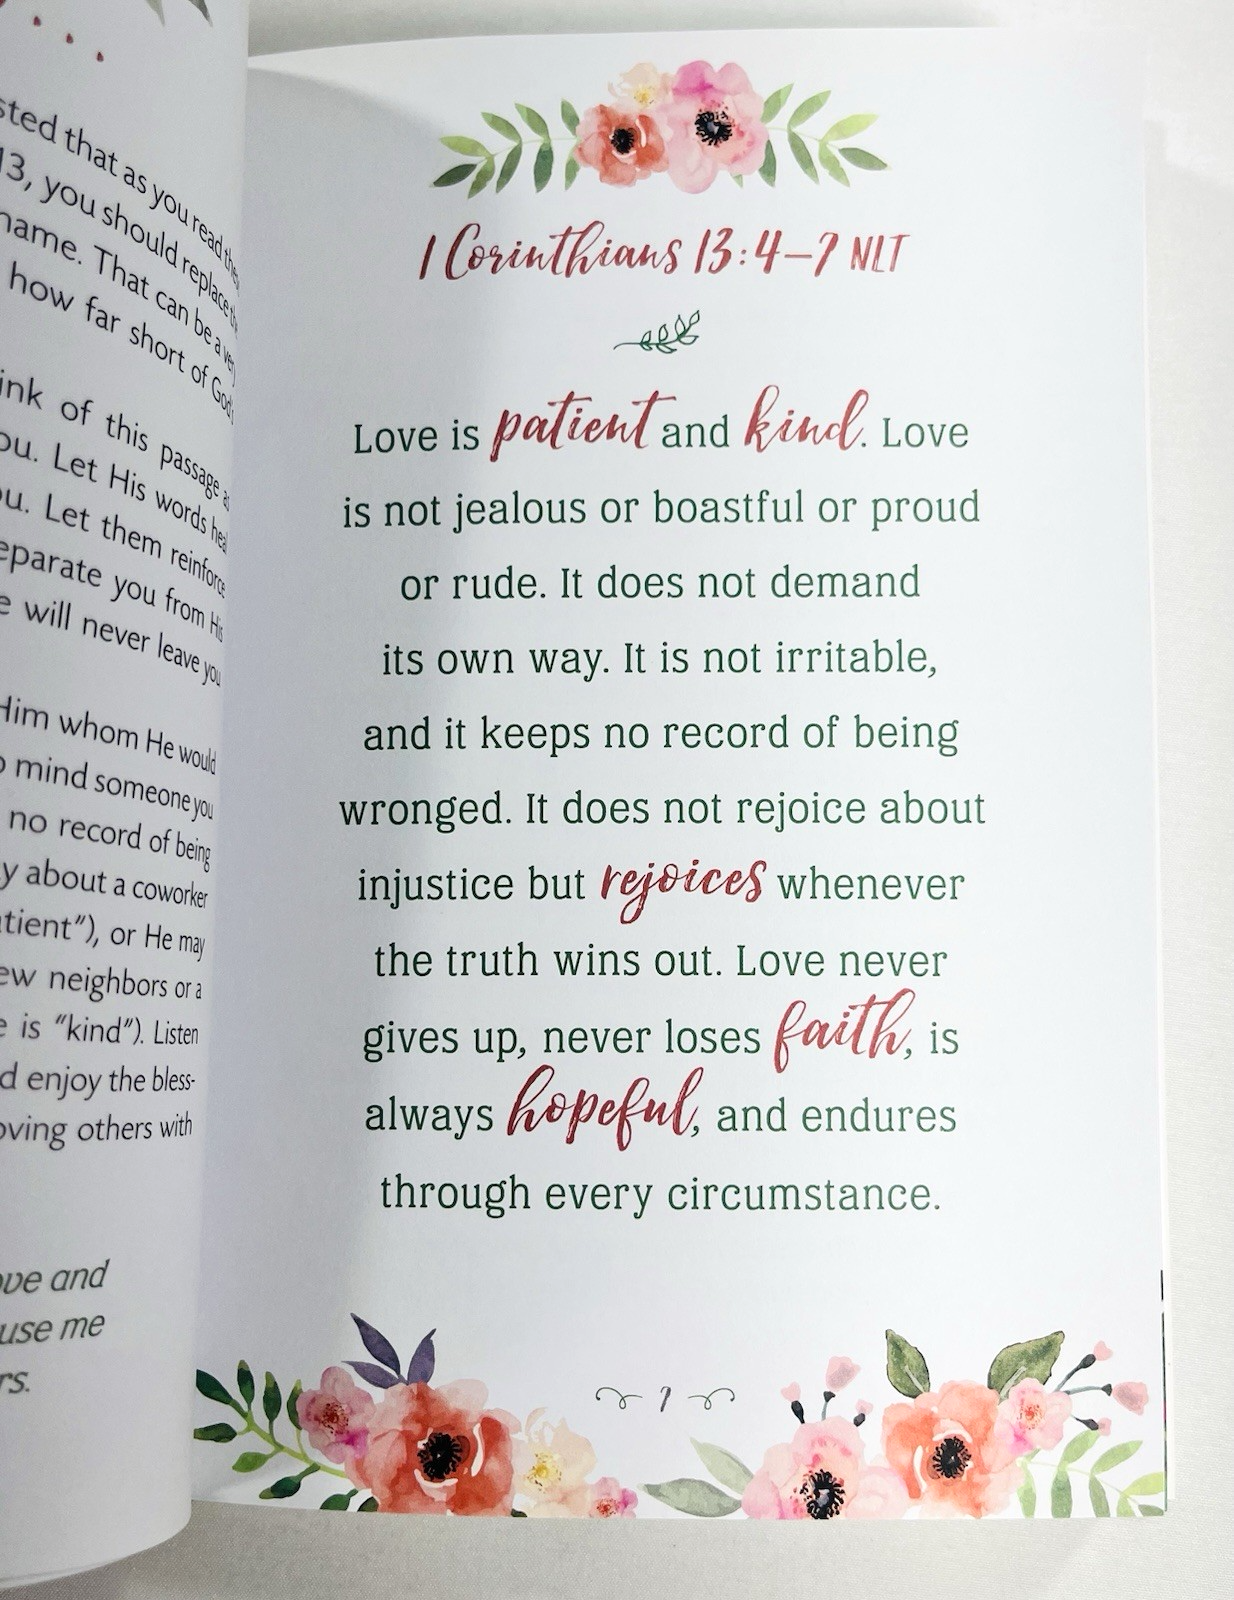 sted that as you read these
13, you should replace
name. That can be a very
how far short of God's
ink of this passage as
ou. Let His words heal
ou. Let them reinforce
eparate you from His
e will never leave you
Him whom He would
o mind someone you
no record of being
y about a coworker
tient"), or He may
ew neighbors or a
e is "kind"). Listen
d enjoy the bless-
oving others with
ove and
use me
rs.
1 Corinthians 13:4–7 NLT
Love is patient and kind. Love
is not jealous or boastful or proud
or rude. It does not demand
its own way. It is not irritable,
and it keeps no record of being
wronged. It does not rejoice about
injustice but rejoices whenever
the truth wins out. Love never
gives up, never loses faith, is
always hopeful, and endures
through every circumstance.
7